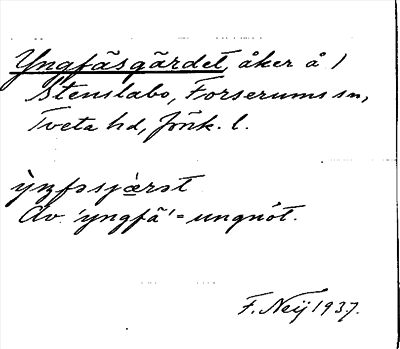 Yngfäsgärdet, åker å 1
Stenslabo, Forserums sn,
Tveta hd, Jönk. l.
Av 'yngfä' = ungnöt.
F. Neij 1937.